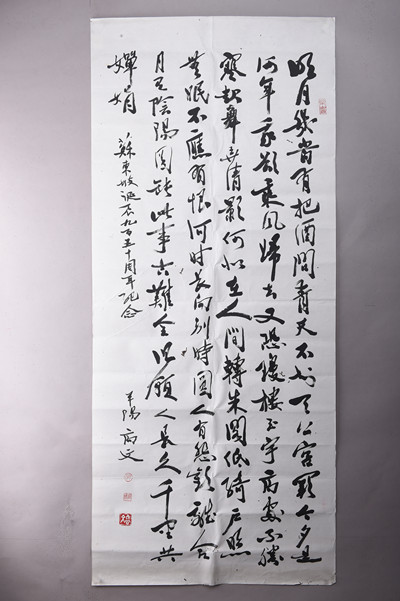 明月幾當有把酒問青天不知天上宮闕今夕是
何年我欲乘風歸去又恐瓊樓玉宇高處不勝
寒起舞弄清影何似在人間轉朱閣低綺戶照
無眠不應有恨何时長向别時圓人有悲歡離合
月有陰陽圓缺此事古難全但願人長久千里共
嬋娟
蘇東坡誕辰九百五十周年紀念